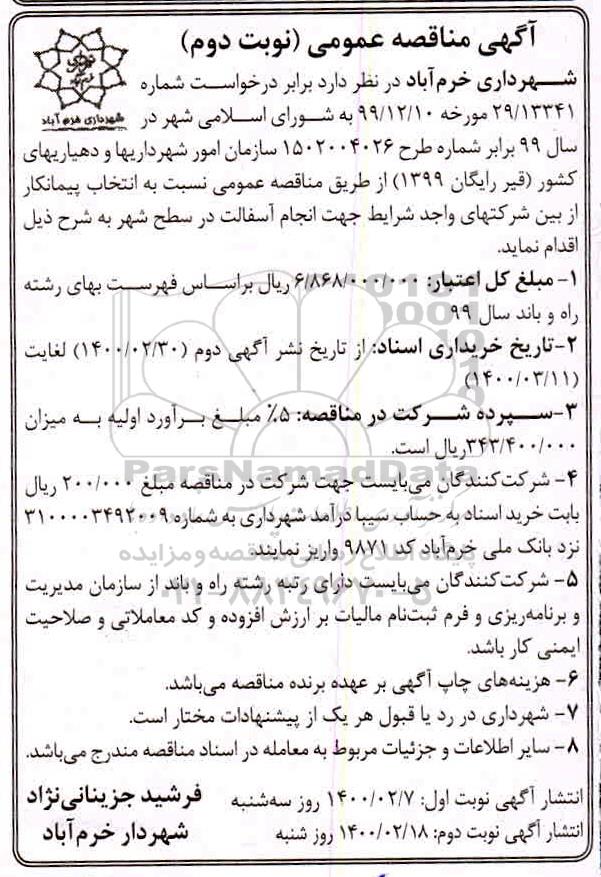 آگهی مناقصه عمومی (نوبت دوم)
شهرداری خرم آباد
شهرداری خرم‌آباد در نظر دارد برابر درخواست شماره
۲۹/۱۳۳۴۱ مورخه ۹۹/۱۲/۱۰ به شورای اسلامی شهر در
سال ۹۹ برابر شماره طرح ۱۵۰۲۰۰۴۰۲۶ سازمان امور شهرداریها و دهیاریهای
کشور (قیر رایگان ۱۳۹۹) از طریق مناقصه عمومی نسبت به انتخاب پیمانکار
از بین شرکتهای واجد شرایط جهت انجام آسفالت در سطح شهر به شرح ذیل
اقدام نماید.
۱- مبلغ کل اعتبار: ۶/۸۶۸/۰۰۰/۰۰۰ ریال براساس فهرست بهای رشته
راه و باند سال ۹۹
۲-تاریخ خریداری اسناد: از تاریخ نشر آگهی دوم (۱۴۰۰/۰۲/۳۰) لغایت
(۱۴۰۰/۰۳/۱۱)
۳-سپرده شرکت در مناقصه: ۵٪ مبلغ برآورد اولیه به میزان
۳۴۳/۴۰۰/۰۰۰ریال است.
ParsNamadData
۴- شرکت‌کنندگان می‌بایست جهت شرکت در مناقصه مبلغ ۲۰۰/۰۰۰ ریال
بابت خرید اسناد به حساب سیبا درآمد شهرداری به شماره ۳۱۰۰۰۰۳۴۹۲۰۰۹
نزد بانک ملی خرم‌آباد کد ۹۸۷۱ واریز نمایند.
۵- شرکت‌کنندگان می‌بایست دارای رتبه رشته راه و باند از سازمان مدیریت
و برنامه‌ریزی و فرم ثبت‌نام مالیات بر ارزش افزوده و کد معاملاتی و صلاحیت
ایمنی کار باشد.
۶- هزینه‌های چاپ آگهی بر عهده برنده مناقصه می‌باشد.
۷- شهرداری در رد یا قبول هر یک از پیشنهادات مختار است.
۸- سایر اطلاعات و جزئیات مربوط به معامله در اسناد مناقصه مندرج می‌باشد.
انتشار آگهی نوبت اول: ۱۴۰۰/۰۲/۷ روز سه‌شنبه
انتشار آگهی نوبت دوم: ۱۴۰۰/۰۲/۱۸ روز شنبه
فرشید جزینانی‌نژاد
شهردار خرم‌آباد